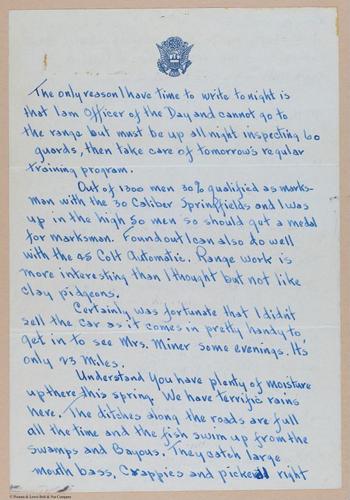 The only reason I have time to write tonight is
that I am Officer of the Day and cannot go to
the range but must be up all night inspecting 60
guards, then take care of tomorrow's regular
training program.
Out of 1300 men 30% qualified as marks-
man with the 30 Caliber Springfields and I was
up in the high 50 men so should get a medal
for marksman. Found out I can also do well
with the 45 Colt Automatic. Range work is
more interesting than I thought but not like
clay pidgeons.
Certainly was fortunate that I didn't
sell the car as it comes in pretty handy to
get in to see Mrs. Miner some evenings. It's
only 23 Miles.
Understand you have plenty of moisture
up there this spring. We have terrific rains
here. The ditches along the roads are full
all the time and the fish swim up from the
swamps and Bayous. They catch large
mouth bass, Crappies and pickerel right